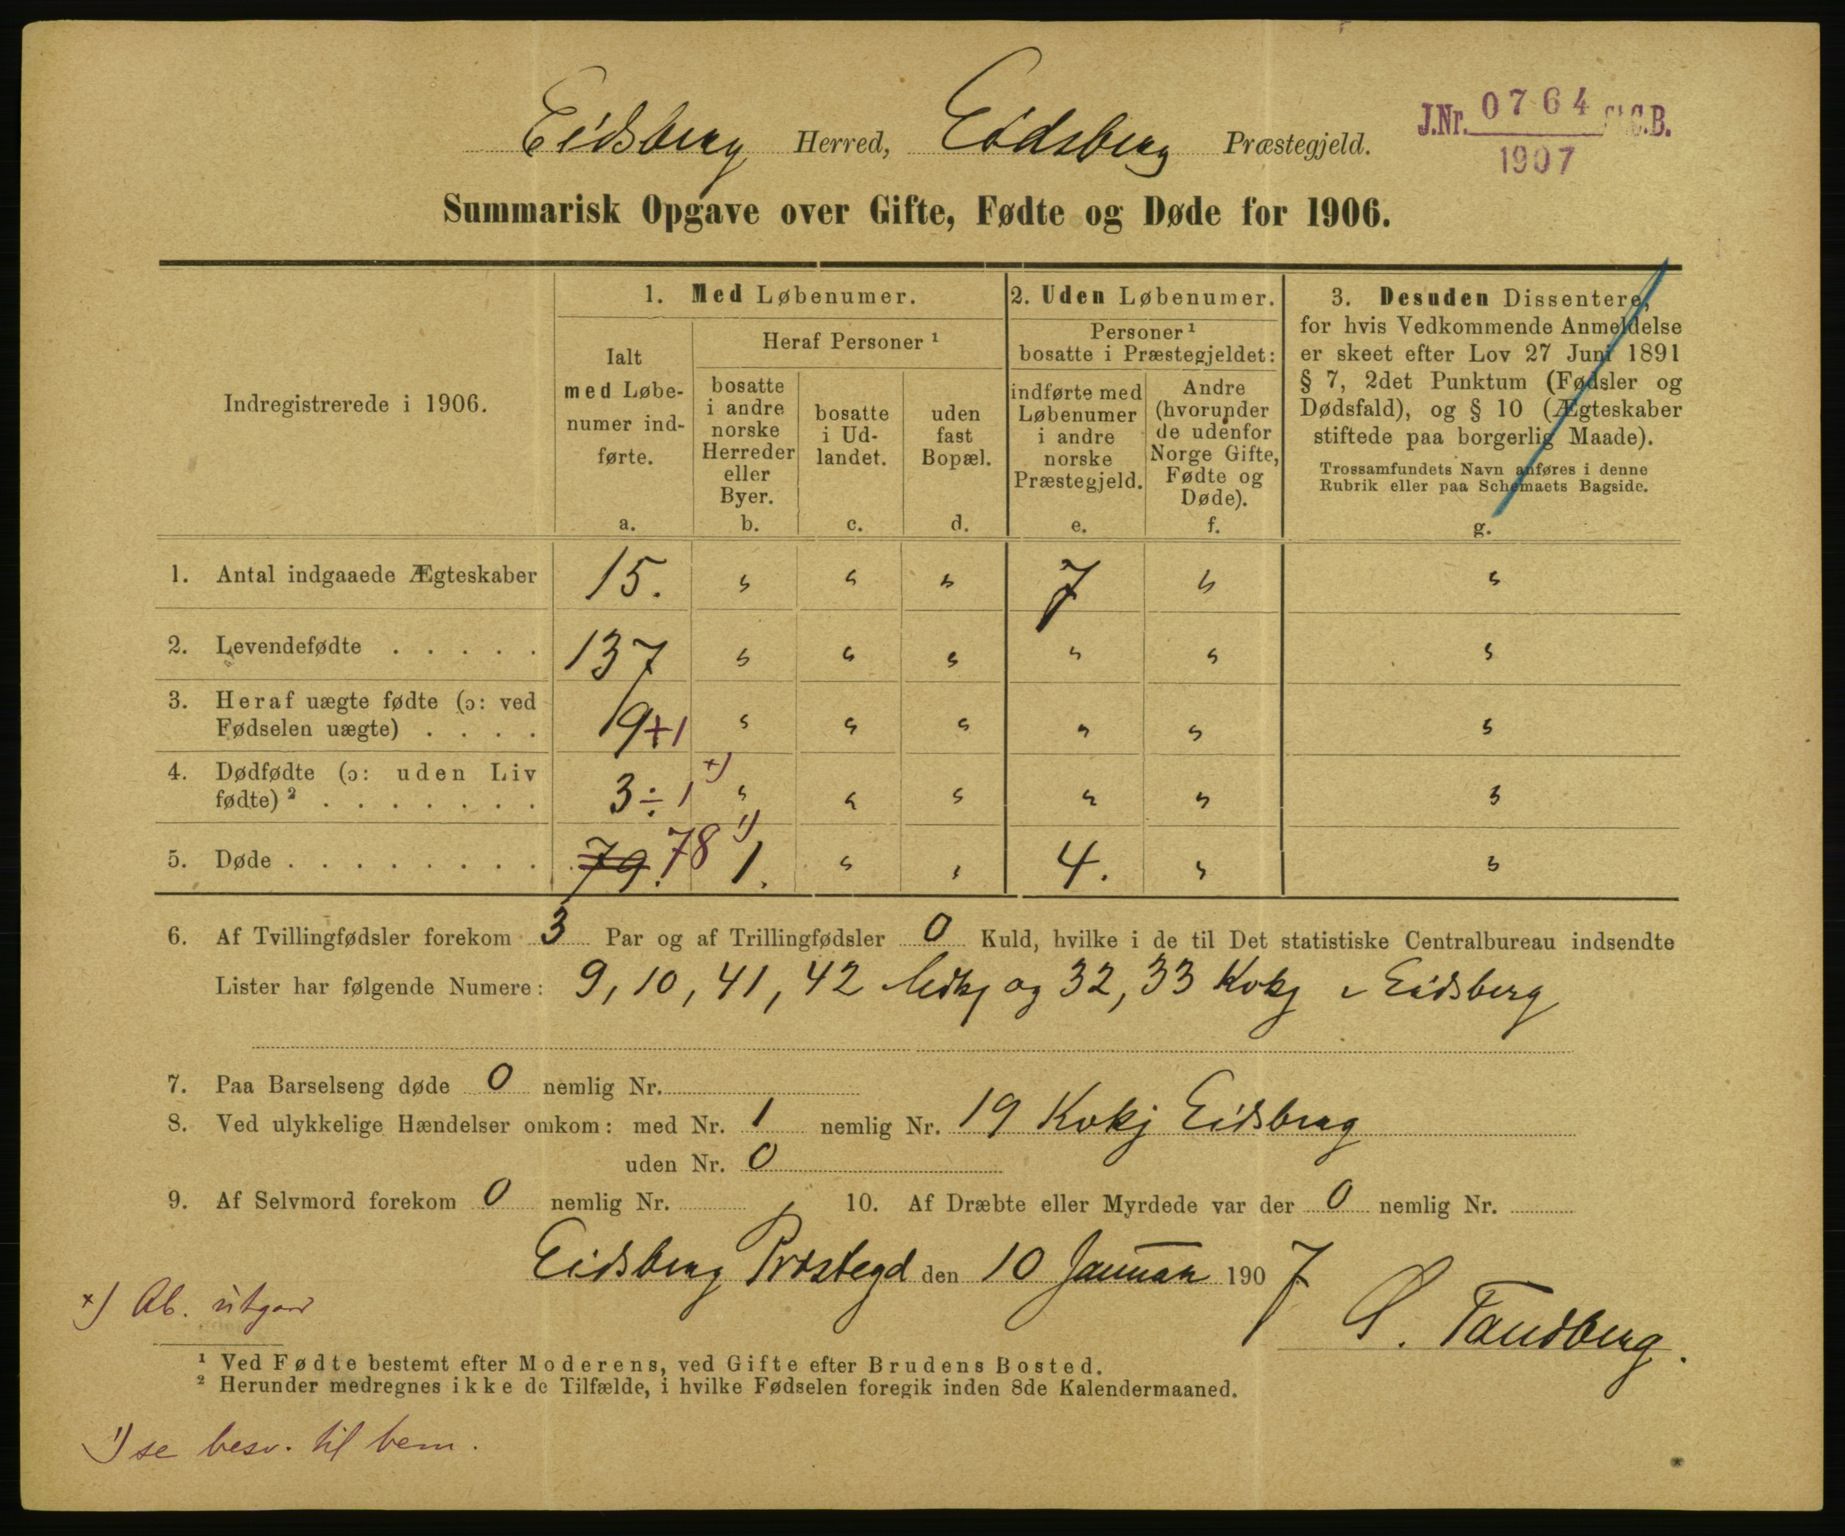 Eidsberg Herred, Eidsberg Præstegjeld.
J.Nr. 0764 St.C.B.
1907
Summarisk Opgave over Gifte, Fødte og Døde for 1906.
Indregistrerede i 1906.
1. Med Løbenumer.
Ialt
med Løbe-
numer ind-
førte.
a.
Heraf Personer ¹
bosatte
i andre
norske
Herreder
eller
Byer.
b.
bosatte
i Ud-
landet.
c.
uden
fast
Bopæl.
d.
2. Uden Løbenumer.
Personer ¹
bosatte i Præstegjeldet:
indførte med
Løbenumer
i andre
norske
Præstegjeld.
e.
Andre
(hvorunder
de udenfor
Norge Gifte,
Fødte og
Døde).
f.
3. Desuden Dissentere,
for hvis Vedkommende Anmeldelse
er skeet efter Lov 27 Juni 1891
§ 7, 2det Punktum (Fødsler og
Dødsfald), og § 10 (Ægteskaber
stiftede paa borgerlig Maade).
Trossamfundets Navn anføres i denne
Rubrik eller paa Schemaets Bagside.
g.
1. Antal indgaaede Ægteskaber 15. " " " 7 " "
2. Levendefødte . . . . . 137 " " " " " "
3. Heraf uægte fødte (ɔ: ved
Fødselen uægte) . . . . 19+1 " " " " " "
4. Dødfødte (ɔ: uden Liv
fødte) ² . . . . . . . 3÷1 x) " " " " " "
5. Døde . . . . . . . . . 79. 78 1) 1. " " 4. " "
6. Af Tvillingfødsler forekom 3 Par og af Trillingfødsler 0 Kuld, hvilke i de til Det statistiske Centralbureau indsendte
Lister har følgende Numere: 9, 10, 41, 42 Mdkj og 32, 33 Kvkj i Eidsberg
7. Paa Barselseng døde 0 nemlig Nr.
8. Ved ulykkelige Hændelser omkom: med Nr. 1 nemlig Nr. 19 Kvkj Eidsberg
uden Nr. 0
9. Af Selvmord forekom 0 nemlig Nr. 10. Af Dræbte eller Myrdede var der 0 nemlig Nr.
Eidsberg Præstegd den 10 Januar 1907
x) Ab. utgaar
Tandberg.
¹ Ved Fødte bestemt efter Moderens, ved Gifte efter Brudens Bosted.
² Herunder medregnes ikke de Tilfælde, i hvilke Fødselen foregik inden 8de Kalendermaaned.
1) se besv. til bem.